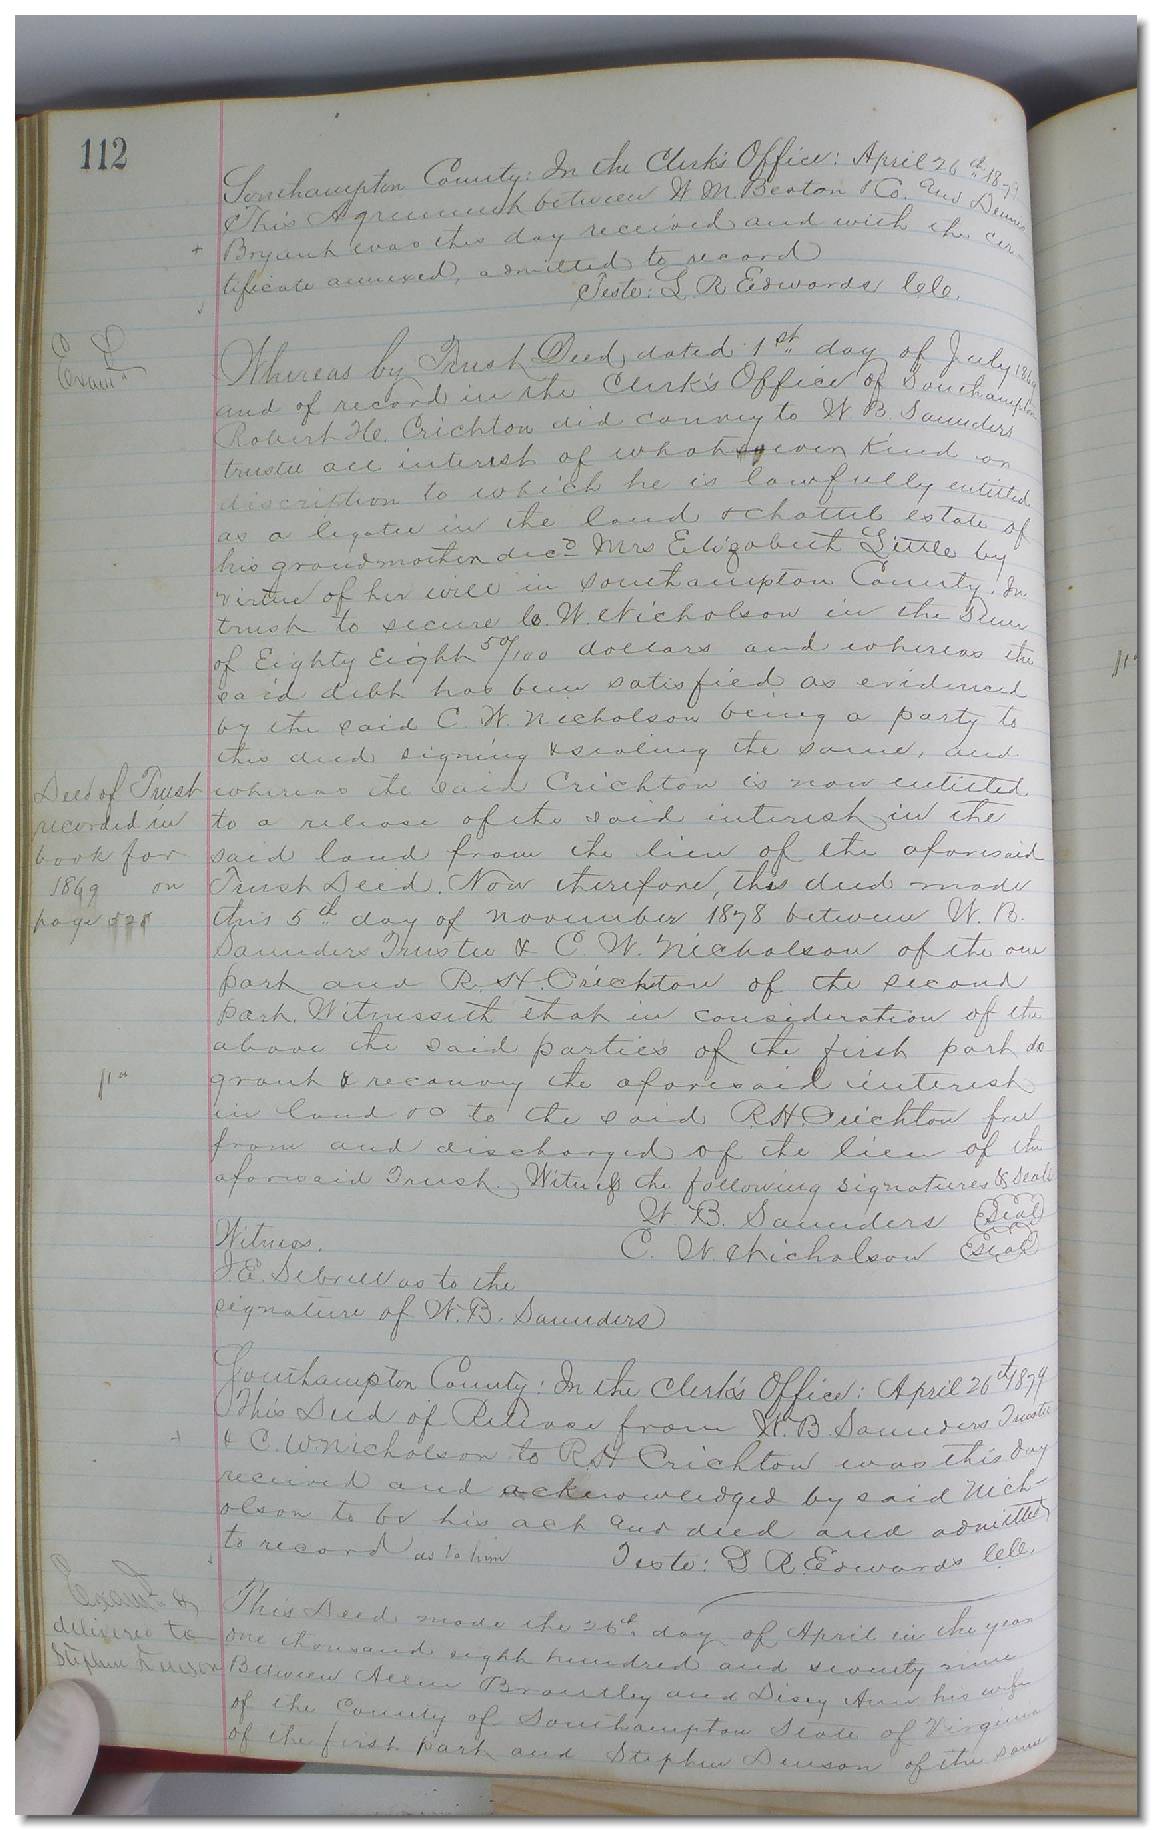 112
Southampton County: In the Clerk's Office: April 26th 1879
This Agreement between W. M. Beaton & Co. and Dennis
Bryant was this day received and with the cer-
tificate annexed, admitted to record
Teste: L. R. Edwards Clk.
Exam'd
Whereas by Trust Deed, dated 1st day of July 1869
and of record in the Clerk's Office of Southampton
Robert H. Crichton did convey to W. B. Saunders
trustee all interest of whatsoever Kind or
discription to which he is lawfully entitled
as a legatee in the land & chattel estate of
his grandmother decd Mrs Elizabeth Little by
virtue of her will in Southampton County. In
trust to secure C. W. Nicholson in the Sum
of Eighty Eight 50/100 dollars and whereas the
said debt has been satisfied as evidenced
by the said C. W. Nicholson being a party to
this deed signing & sealing the same, and
Deed of Trust
recorded in
book for
1869 on
page
whereas the said Crichton is now entitled
to a release of the said interest in the
said land from the lien of the aforesaid
Trust Deed. Now therefore, this deed made
this 5th day of November 1878 between W. B.
Saunders Trustee & C. W. Nicholson of the one
part and R. H. Crichton of the second
part. Witnesseth that in consideration of the
above the said parties of the first part do
grant & reconvey the aforesaid interest
in land &c to the said R. H. Crichton free
from and discharged of the lien of the
aforesaid Trust. Witness the following signatures & seals
W. B. Saunders Seal
C. W. Nicholson Seal
Witness.
J. E. Sebrell as to the
signature of W. B. Saunders
Southampton County: In the Clerk's Office: April 26th 1879
This Deed of Release from W. B. Saunders Trustee
& C. W. Nicholson to R. H. Crichton was this day
received and acknowledged by said Nich-
olson to be his act and deed and admitted
to record as to him Teste: L. R. Edwards Clk.
Exam'd &
delivered to
Stephen Denson
This Deed made the 26th day of April in the year
one thousand eight hundred and seventy nine
Between Allen Brantley and Disey Ann his wife
of the County of Southampton State of Virginia
of the first part and Stephen Denson of the same